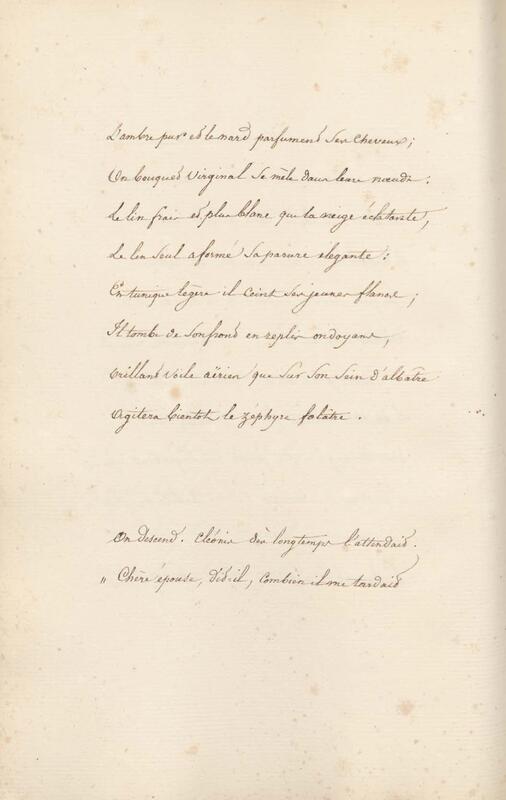 L'ambre pur et le nard parfument Ses cheveux;
Un bouquet Virginal Se mêle dans leurs nœuds.
Le lin frais et plus blanc que la neige éclatante,
Le lin Seul a formé Sa parure élegante:
En tunique légère il Ceint Ses jeunes flancs;
Il tombe de Son front en replis ondoyans,
brillant Voile aërien que Sur Son Sein d'albatre
Agitera bientot le zéphyre folâtre.
On descend. Cléonis dès longtemps l'attendait.
" Chère épouse, dit-il, combien il me tardait